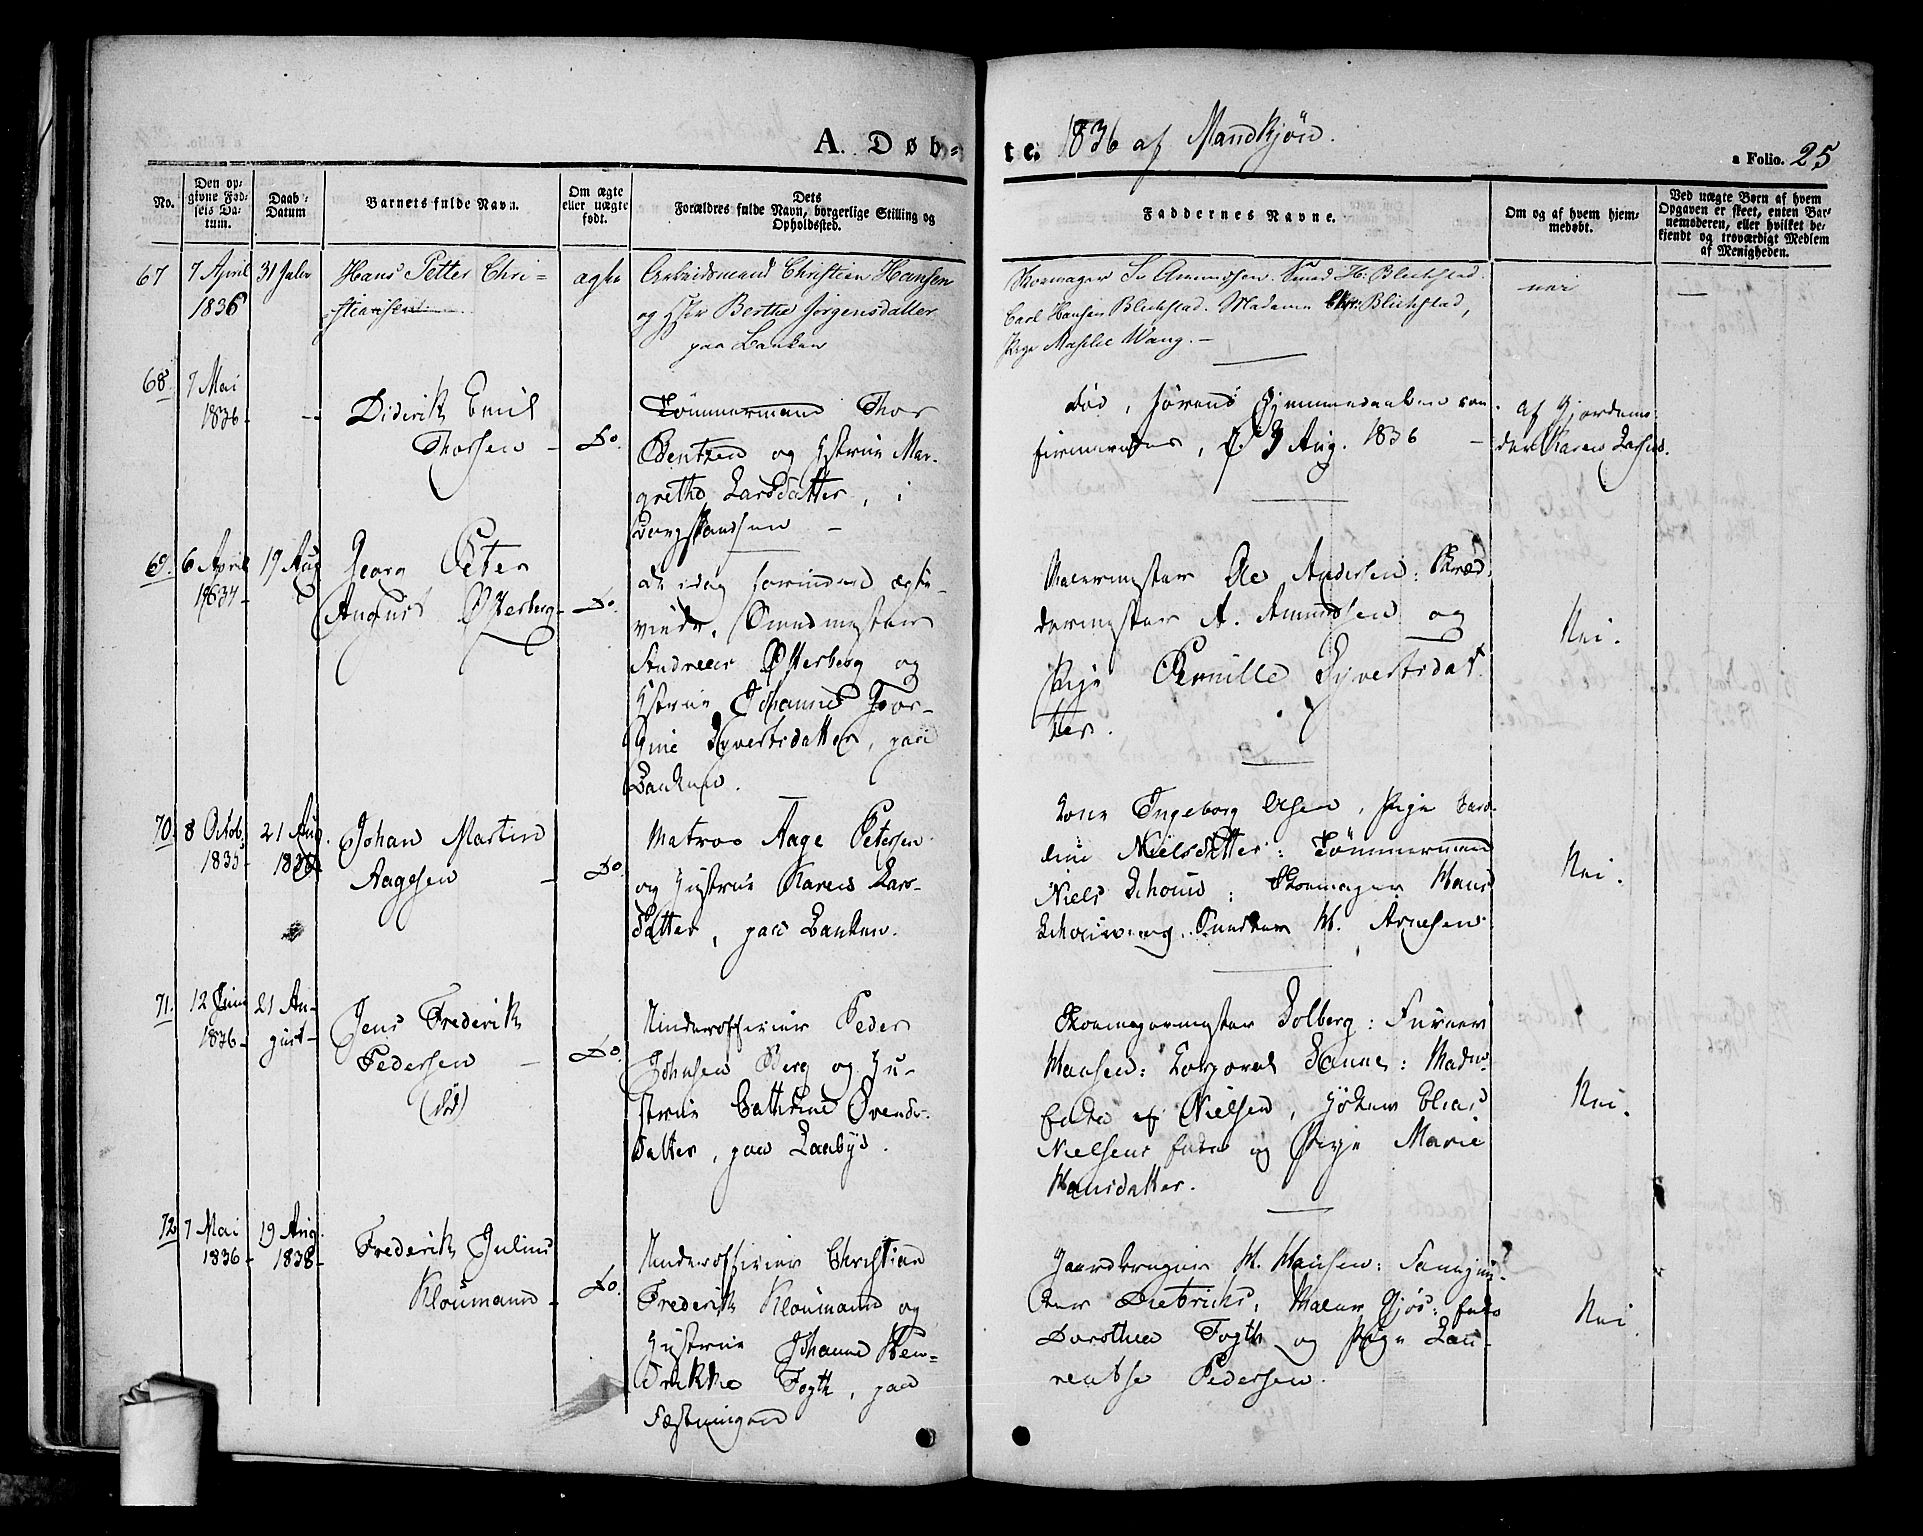 A. Døb-
te. 1836 af Mandkjøn.
a Folio. 25
No.
Den op-
givne Fød-
sels Da-
tum.
Daab-
Datum
Barnets fulde Navn.
Om ægte
eller uægte
født.
Dets
Forældres fulde Navn, borgerlige Stilling og
Opholdssted.
Faddernes Navne.
Om og af hvem hjem-
medøbt.
Ved uægte Børn af hvem
Opgaven er skeet, enten Bar-
nemoderen, eller hvilket be-
kjendt og troværdigt Medlem
af Menigheden.
67
7 April
1836
31 Julii
Hans Petter Chri-
stiansen
ægte
Arbeidsmand Christian Hansen
og Hstr Berthe Jørgensdatter
paa Banken
Skomager Amundsen. Svend H. Blichstad.
Carl Hansen Blichstad. Madame Blichstad,
Pige Wang. -
nei
—
68.
7 Mai
1836-
--
Diderik Emil
Thorsen -
Do.
Tømmermand Thor
Bentzen og Hstrue Mar-
grethe Larsdatter, i
-
død, førend Hjemmedaaben con-
firmeredes, d. 3 Aug. 1836 -
af Gjordemo-
der Karen
69.
6 April
1834-
19 Aug
Georg Peter
August Østerberg-
Do.
de idag forinden ægte-
viede, Smedmester
Andreas Østerberg og
Hstrue Johanne Jør-
gine Syvertsdatter, paa
Banken.
Malermester Ole Andersen: Skræd-
dermester A. Amundsen og
Pige Pernille Syvertsdat-
ter.
Nei.
70.
8 Octob.
1835-
21 Aug.
1836
Johan Martin
Aagesen -
Do.
Matros Aage Petersen
og Hustrue Karen Lars-
datter, paa Banken.
Kone Ingeborg Olsen, Pige Caro-
line Nielsdatter: Tømmermand
Niels Schou: Skomager Hans
Schou og Snedker H. Arnesen.
Nei.
71.
12 Juni
1836-
21 Au-
gust-
Jens Frederik
Pedersen -
(død)
Do.
Underofficier Peder
Johnsen Berg og Hu-
strue Cathrine Svends-
datter, paa Labyd.
Skomagermester Solberg: Furer
Hansen: Corporal Hanne: Madm.
Enke af Nielsen, Elias
Nielsens Enke og Pige Marie
Hansdatter.
Nei.
72
7 Mai
1836-
19 Aug.
1838-
Frederik Julius
Kloumann -
Do.
Underofficier Christian
Frederik Kloumann og
Hustrue Johanne Hen-
drikke Fogth, paa
Fæstningen
Gaardbruger H. Hansen: Fangevog-
ter Diedrichs: Maler Gjøs: Enke
Dorothea Fogth og Pige Lau-
rentse Pedersen.
Nei.